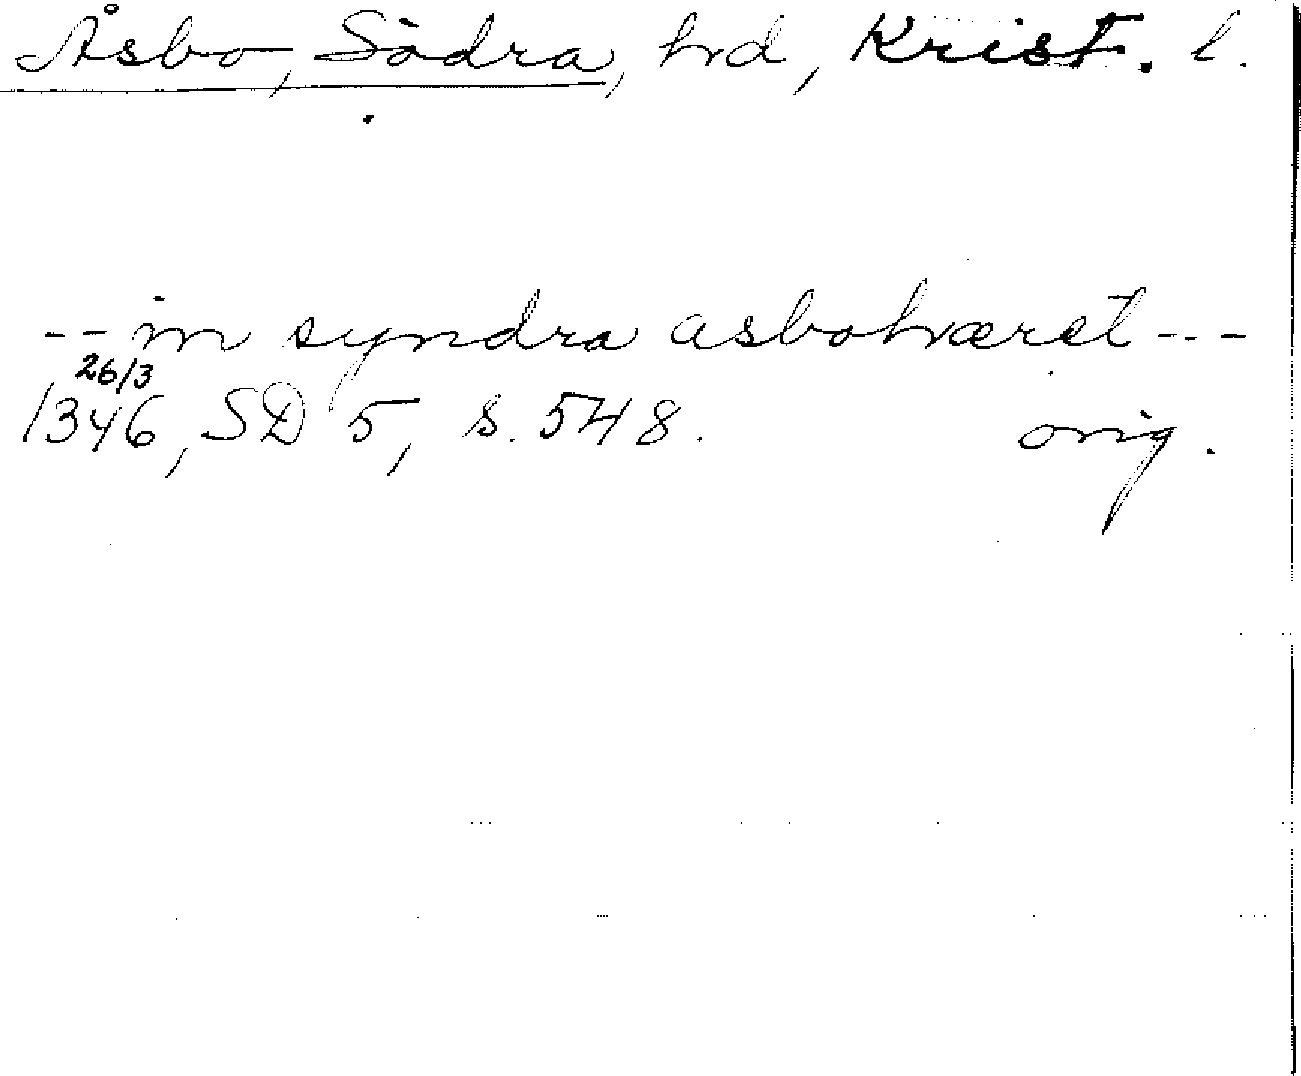 Åsbo, Södra, hd, Krist. l.
-- in syndra asbohæret ---
26/3
1346, SD 5, s. 548. orig.